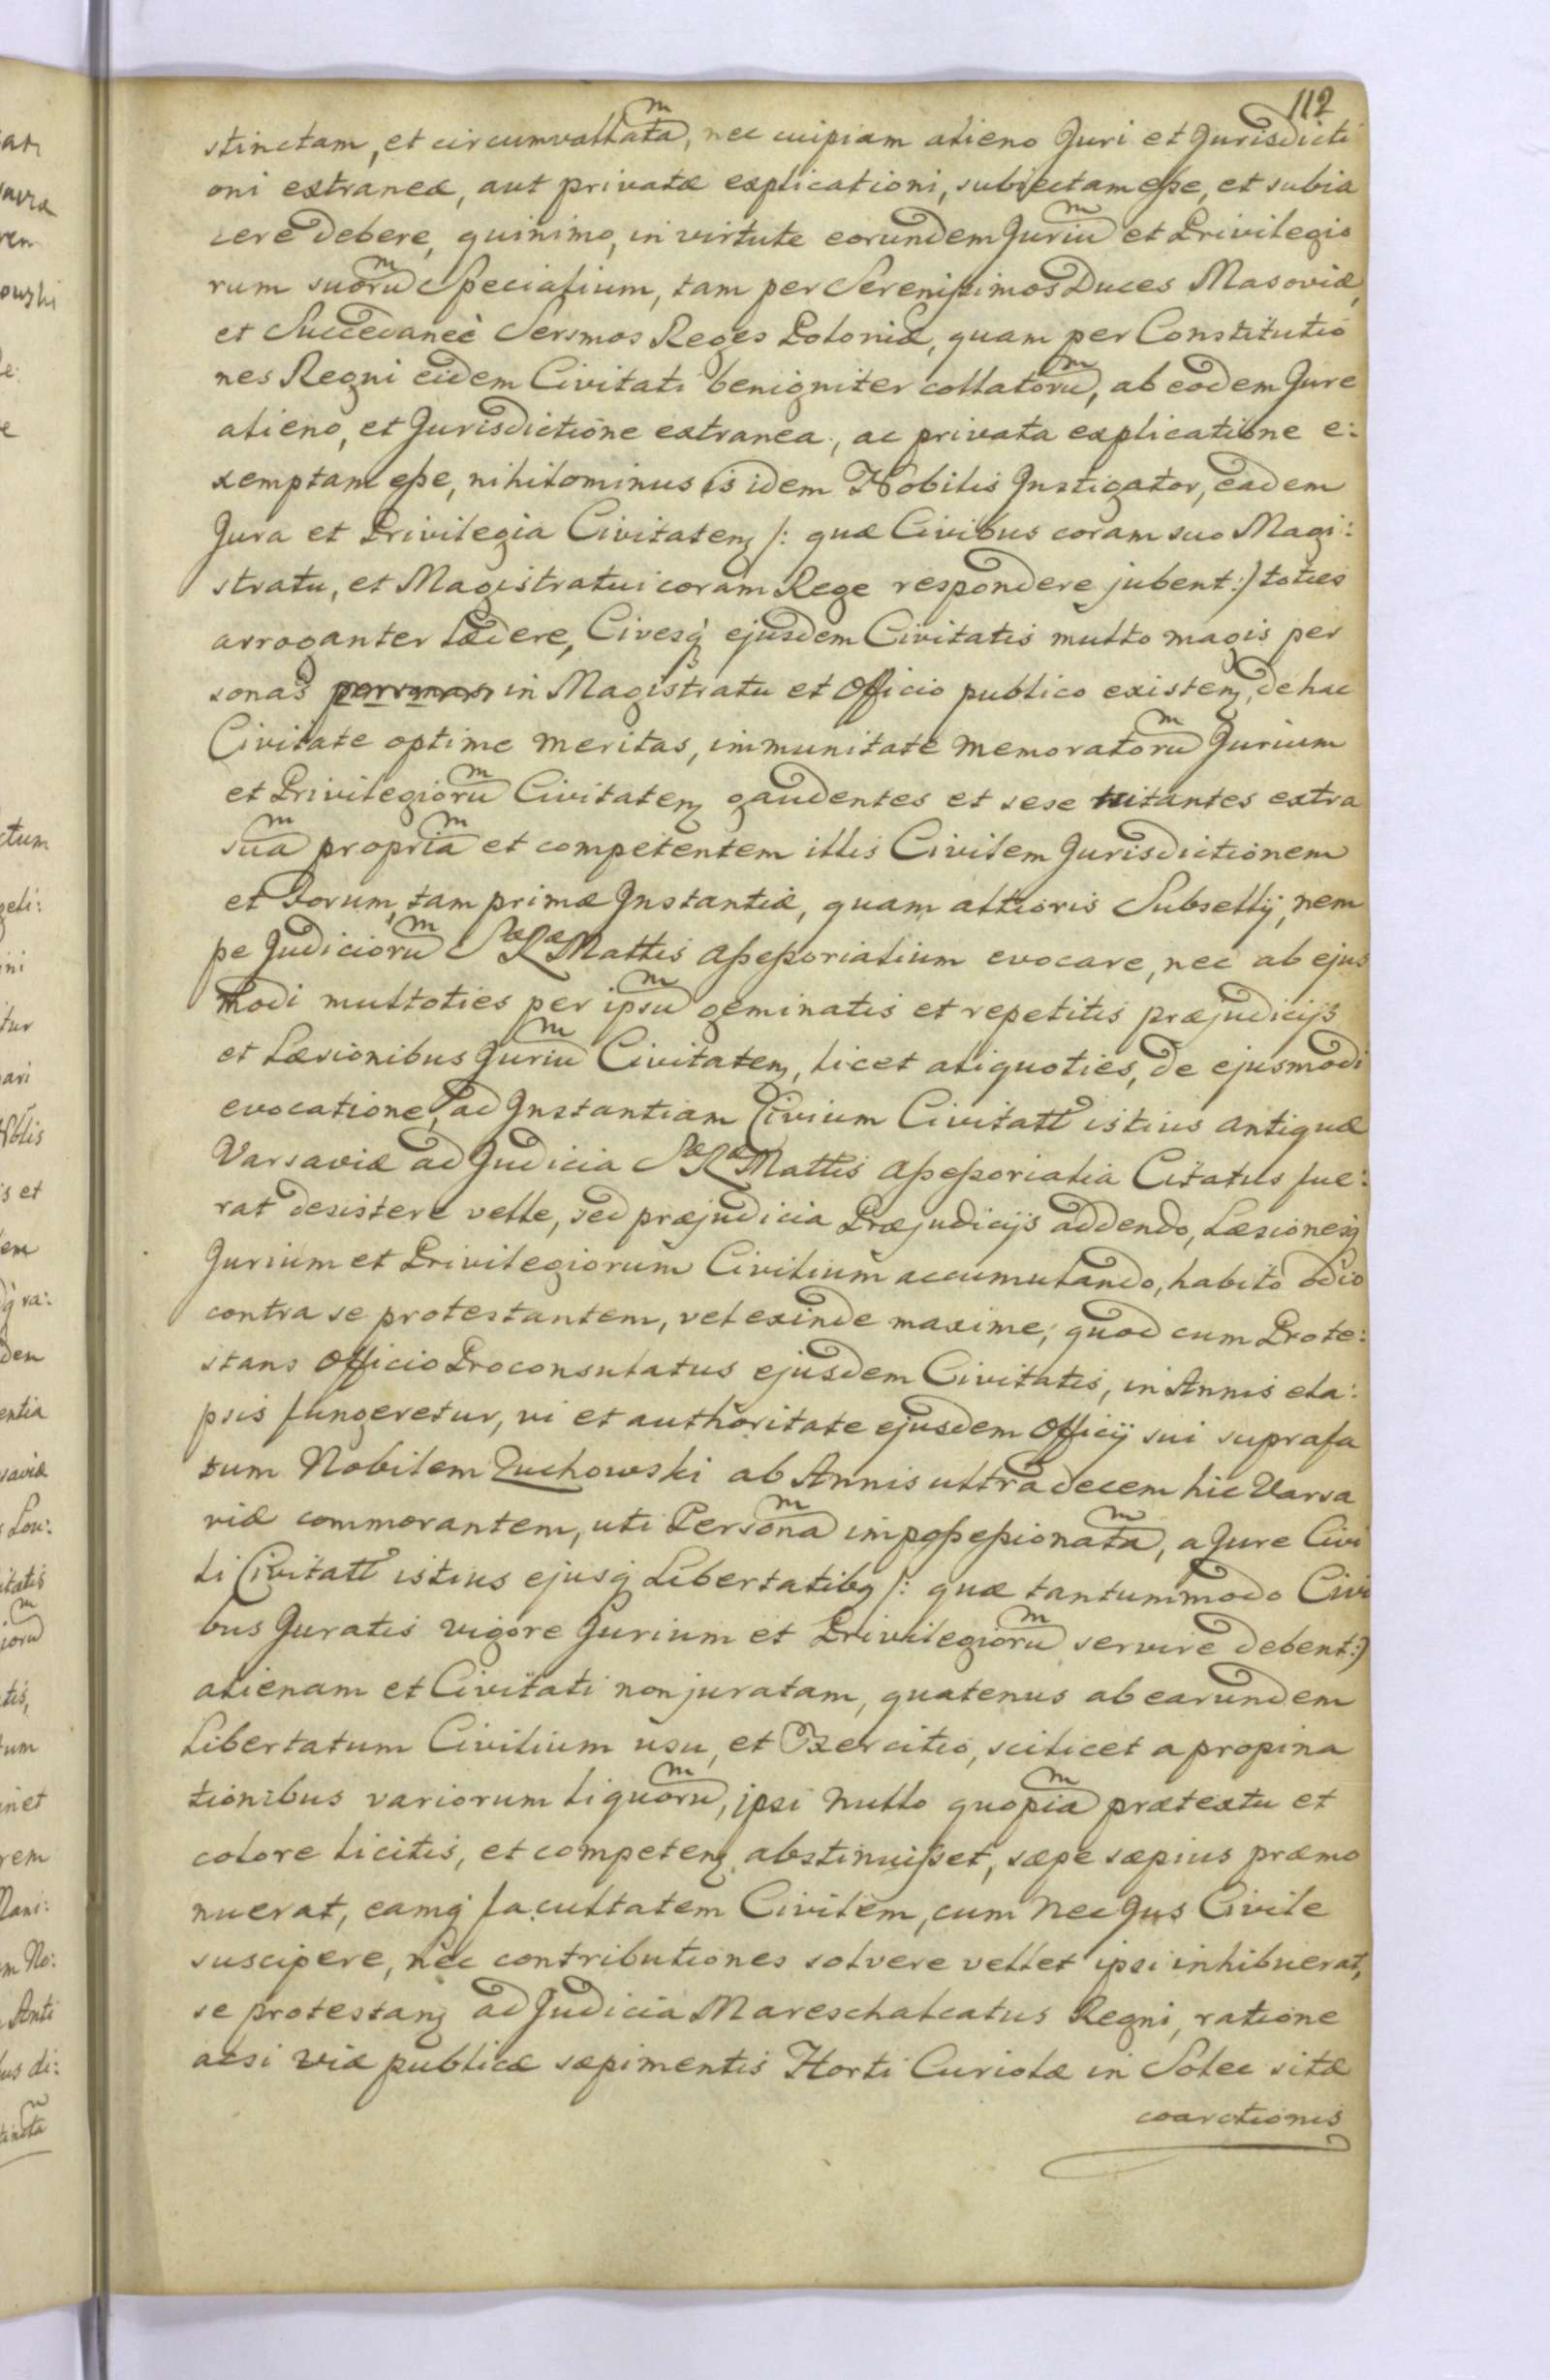 112
stinctam, et circumvallatam, nec cuipiam alieno Juri et Jurisdicti
oni extraneæ, aut privatæ explicationi, subjectam esse, et subia
cere debere, quinimo, in virtute eorundem Jurium et Privilegio
rum suorum Specialium, tam per Serenissimos Duces Masoviæ,
et Succedaneè Sersmos Reges Poloniæ, quam per Constitutio
nes Regni eidem Civitati benigniter collatorum, ab eodem Jure
alieno, et Jurisdictione extranea, ac privata explicatione e:
xemptam esse, nihilominus is idem Nobilis Instigator, eadem
Jura et Privilegia Civitatenȝ /: quæ Civibus coram suo Magi:
stratu, et Magistratui coram Rege respondere jubent :/ toties
arroganter lædere, Civesq́ ejusdem Civitatis multo magis per
sonas personas in Magistratu et Officio publico existenȝ, de hac
Civitate optime meritas, immunitate memoratorum Jurium
et Privilegiorum Civitatenȝ gaudentes et sese tuitantes extra
suam propriam et competentem illis Civilem Jurisdictionem
et Forum, tam primæ Instantiæ, quam altioris Subsellÿ, nem
pe Judiciorum Sæ Ræ Mattis Assessorialium evocare, nec ab ejus
modi multoties per ipsum geminatis et repetitis præjudicijs
et Læsionibus Jurium Civitatenȝ, licet aliquoties, de ejusmodi
evocatione, ad Instantiam Civium Civitatt istius Antiquæ
Varsaviæ ad Judicia Sæ Ræ Mattis Assessorialia Citatus fue:
rat desistere velle, sed præjudicia Præjudicijs addendo, Læsionesq́
Jurium et Privilegiorum Civilium accumulando, habito odio
contra se protestantem, vel exinde maxime, quod cum Prote:
stans Officio Proconsulatus ejusdem Civitatis, in Annis ela:
psis fungeretur, vi et authoritate ejusdem Officÿ sui suprafa
tum Nobilem Zuchowski ab Annis ultra decem hic Varsa
viæ commorantem, uti Personam impossessionatam, a Jure Civi
li Civitatt istius ejusq́ Libertatibȝ /: quæ tantummodo Civi
bus Juratis vigore Jurium et Privilegiorum servire debent :/
alienam et Civitati non juratam, quatenus ab earundem
Libertatum Civilium usu, et Exercitio, scilicet a propina
tionibus variorum liquorum, ipsi nullo quopiam prætextu et
colore licitis, et competenȝ abstinuisset, sæpe sæpius præmo
nuerat, eamq́ facultatem Civilem, cum nec Jus Civile
suscipere, nec contributiones solvere vellet ipsi inhibuerat,
se protestanȝ ad Judicia Mareschalcatus Regni, ratione
acsi viæ publicæ sæpimentis Horti Curiolæ in Solec sitæ
coarctionis